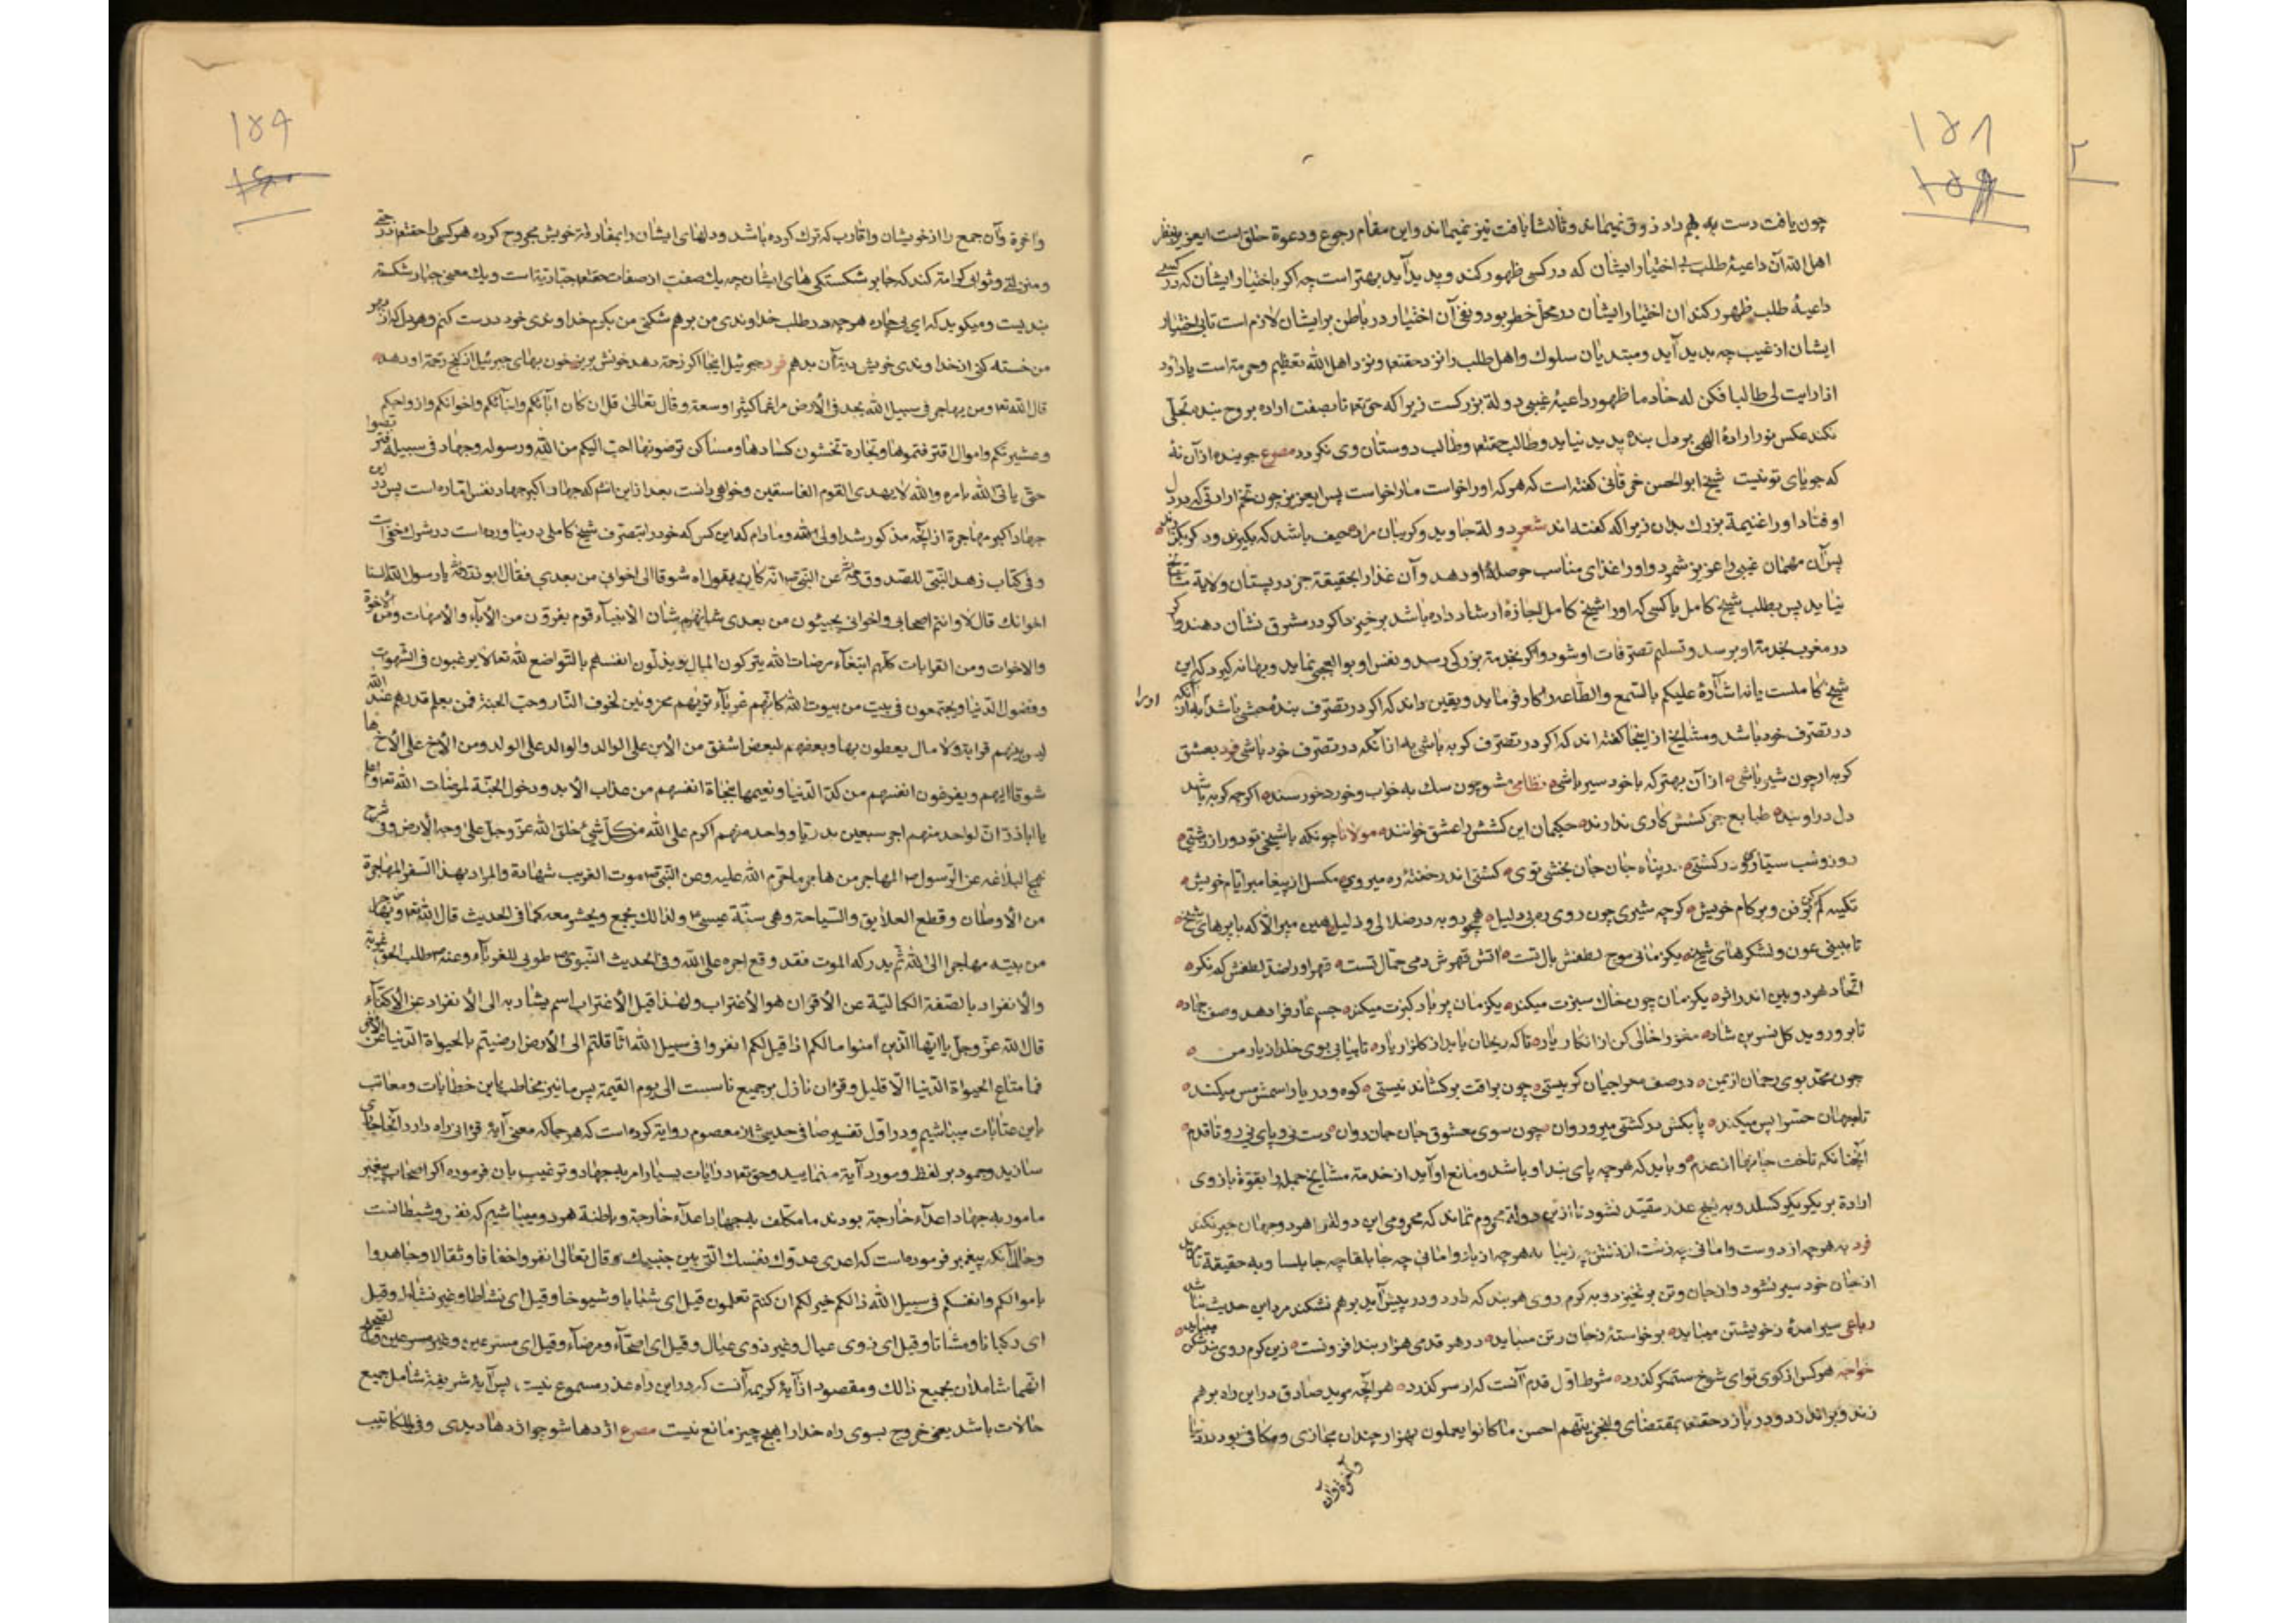 ۱۵۸
۱۵۹
۲
چون یافت دست بهم داد ذوق نمیماند وثالثا یافت نیز نمیماند واین مقام رجوع ودعوة خلق است ایعزیز بنظر
اهل الله آن داعیهٔ طلب بی اختیار ایشان که در کسی ظهور کند و پدید آید بهتر است چه اکر باختیار ایشان که در کسی
داعیهٔ طلب ظهور کند آن اختیار ایشان در محل خطر بود ونفی آن اختیار در باطن بر ایشان لازم است تا بی اختیار
ایشان از غیب چه پدید آید ومبتدیان سلوك واهل طلب را نزد حقتعا ونزد اهل الله تعظیم وحرمة است یا داود
اذا رایت لی طالبا فکن له خادما ظهور داعیهٔ غیبی دولة بزرکست زیرا که حق تعا تا بصفت اراده بر روح بنده تجلّی
نکند عکس نور ارادهٔ الهی بر دل بنده پدید نیاید وطالب حقتعا وطالب دوستان وی نکردد مصرع جوینده از آن نهٔ
که جویای تو نیست شیخ ابوالحسن خرقانی کفته است که هر که او را خواست ما را خواست پس ایعزیز چون تخم ارادتی که در دل
اوفتاد او را غنیمة بزرك بدان زیرا که کفته اند شعر دولة جاوید وکریبان مراد حیف باشد که بکیرند ودکر بکذارند
پس آن مهمان غیبی را عزیز شمرد واو را غذای مناسب حوصلهٔ او دهد وآن غذا را بحقیقة جز در پستان ولایة مشایخ
نیابد پس بطلب شیخ کامل یا کسی که او را شیخ کامل اجازهٔ ارشاد داده باشد برخیزد اکر در مشرق نشان دهند واکر
در مغرب بخدمة او برسد وتسلیم تصرّفات او شود واکر بخدمة بزرکی رسد ونفس او بوالعجبی نماید وبهانه کیرد که این
شیخ کاملست یا نه اشارهٔ علیکم بالسّمع والطّاعه را کار فرماید ویقین داند که اکر در تصرّف بندهٔ حبشی باشد به از آنکه او را
در تصرّف خود باشد ومشایخ از اینجا کفته اند که اکر در تصرّف کربه باشی به از آنکه در تصرّف خود باشی فرد بعشق
کربه ار چون شیر باشی از آن بهتر که با خود سیر باشی نظامی مشو چون سك به خواب وخورد خورسند اکرچه کربه باشد
دل در او بند طبایع جز کشش کاری ندارند حکیمان این کشش را عشق خوانند مولانا چونکه با شیخی تو دور از زشتی
روز وشب سیّاری ودر کشتی در پناه جان جان بخشی توی کشتی اندر خفتهٔ ره میروی مکسل از پیغامبر ایام خویش
تکیه کم کن بر فن وبر کام خویش کرچه شیری چون روی ره بی دلیل همچو روبه در ضلالی ودلیل هین مپر الّا که با پرهای شیخ
تا ببینی عون ونشکرهای شیخ یکزمانی موج لطفش بال تست آتش قهرش دمی حمّال تست قهر او را ضدّ لطفش کم نکر
اتّحاد هر دو بین اندر اثر یکزمان چون خاك سبزت میکند یکزمان پر باد کبزت میکند جسم عارف را دهد وصف جماد
تا برو روید کل نسرین شاد مغز را خالی کن از انکار یار تا که ریحان یابد از کلزار یار تا بیابی بوی خلد از یار من
چون محمّد بوی رحمان از یمن در صف معراجیان کر بیستی چون براقت بر کشاند نیستی کوه ودریا را سمش مس میکند
تا بجهان حس را پس میکند پا بکش در کشتی میرو روان چون سوی معشوق جان جان روان دست نی وپای نی رو تا قدم
آنچنانکه تاخت جانها از عدم وباید که هر چه پای بند او باشد ومانع او آید از خدمة مشایخ جمله را بقوّة بازوی
ارادة بر یکدیکر کسلد وبه هیچ عذر مقیّد نشود تا از این دولة محروم نماند که محرومی این دولة را هر دو جهان جبر نکند
فرد به هر چه از دوست وامانی چه زشت آن نقش وچه زیبا به هرچه از راه وامانی چه جابلقا چه جابلسا وبه حقیقة تا مرد
از جان خود سیر نشود واز جان وتن برنخیزد وبه کرم روی هر بند که دارد ودر پیش آید برهم نشکند مرد این حدیث نباشد
رباعی سیر آمدهٔ ز خویشتن میباید برخواستهٔ ز جان وتن میباید در هر قدمی هزار بند افزونست زین کرم روی بند شکن میباید
خواجه هر کس از کوی تو ای شوخ ستمکر کذرد شرط اوّل قدم آنست که از سر کذرد هر آنچه مرید صادق در این راه برهم
زند وبر اندازد ودر بازد حقتعا بمقتضای ولنجزینّهم احسن ما کانوا یعملون بهزار چندان مجازی ومکافی بود در دنیا
وآخرة وآن
۱۵۹
۱۶۰
وآخرة وآن جمع را از خویشان واقارب که ترك کرده باشد ودلهای ایشان را بمفارقة خویش مجروح کرده هر کسی را حقتعا درجتی
ومنزلتی وثوابی کرامة کند که جابر شکستکی های ایشان چه یك صفت از صفات حقتعا جبّاریّة است ویك معنی جبّار شکسته
بندیست ومیکوید که ای بیچاره هرچه در طلب خداوندی من برهم شکنی من بکرم خداوندی خود درست کنم وهر دل که از بهر
من خسته کنی از خداوندی خویش دیة آن بدهم فرد جبرئیل اینجا اکر زحمة دهد خونش بریز خون بهای جبرئیل از کنج رحمة او دهد
قال الله تعا ومن یهاجر فی سبیل الله یجد فی الأرض مراغما کثیرا وسعة وقال تعالی قل ان کان آباؤکم وابنآئکم واخوانکم وازواجکم
وعشیرتکم واموال اقترفتموها وتجارة تخشون کسادها ومساکن ترضونها احبّ الیکم من الله ورسوله وجهاد فی سبیله فتربّصوا
حتّی یاتی الله بامره والله لا یهدی القوم الفاسقین وخواهی دانست بعد از این انشم که جهاد اکبر جهاد نفس امّاره است پس در این
جهاد اکبر مهاجرة از آنچه مذکور شد اولی الله وما دام که این کس که خود را بتصرّف شیخ کاملی در نیاورده است در شرك خفی است
وفی کتاب زهد النّبی للصّدوق عن النّبی انّه کان یقول اه شوقا الی اخوانی من بعدی فقال ابوذر یا رسول الله السنا
اخوانك قال لا وانتم اصحابی واخوانی یجیئون من بعدی شانهم شان الأنبیآء قوم یفرّون من الأبآء والأمهات ومن الأخوة
والاخوات ومن القرابات کلّهم ابتغآء مرضات الله یترکون المال ویذلّون انفسهم بالتّواضع لله تعا لا یرغبون فی الشّهوات
وفضول الدّنیا ویجتمعون فی بیت من بیوت الله کانّهم غربآء تریهم محزونین لخوف النّار وحبّ الجنة فمن یعلم قدرهم عند الله
لیس بینهم قرابة ولا مال یعطون بها وبعضهم لبعض اشفق من الأبن علی الوالد والوالد علی الولد ومن الأخ علی الأخ ها
شوقا الیهم ویفرغون انفسهم من کدّ الدّنیا ونعیمها بنجاة انفسهم من عذاب الأبد ودخول الجنّة لمرضات الله تعا واعلم
یا اباذر انّ لواحد منهم اجر سبعین بدریّا وواحد منهم اکرم علی الله من کلّ شیء خلق الله عزّ وجلّ علی وجه الأرض وفی شرح
نهج البلاغه عن الرّسول المهاجر من هاجر ما حرّم الله علیه وعن النّبی موت الغریب شهادة والمراد بهذا السّفر المهاجرة
من الأوطان وقطع العلایق والسّیاحة وهی سنّة عیسی ولذالك یجمع ویحشر معه کما فی الحدیث قال الله تعا ومن یخرج
من بیته مهاجرا الی الله ثم یدرکه الموت فقد وقع اجره علی الله وفی الحدیث النّبوی طوبی للغربآء وعنه طلب الحق غربة
والأنفراد بالصّفة الکمالیّة عن الأقران هو الأغتراب ولهذا قیل الأغتراب اسم یشار به الی الأنفراد عن الأکفآء
قال الله عزّ وجلّ یا ایّها الّذین آمنوا مالکم اذا قیل لکم انفروا فی سبیل الله اثّاقلتم الی الأرض ارضیتم بالحیواة الدّنیا من الأخرة
فما متاع الحیواة الدّنیا الّا قلیل وقرآن نازل بر جمیع ناسست الی یوم القیمة پس ما نیز مخاطب باین خطابات ومعاتب
باین عتابات میباشیم ودر اوّل تفسیر صافی حدیثی از معصوم روایة کرده است که هر جا که معنی آیهٔ قرآنی راه دارد آنجا جاری
سازید وجمود بر لفظ ومورد آیة منمایید وحق تعا در آیات بسیار امر به جهاد وترغیب بآن فرموده اکر اصحاب پیغمبر
مامور به جهاد اعدآء خارجة بودند ما مکلّف به جهاد اعدآء خارجة وباطنة هر دو میباشیم که نفس وشیطانست
وحال آنکه پیغمبر فرموده است که اعدی عدوّك نفسك الّتی بین جنبیك وقال تعالی انفروا خفافا وثقالا وجاهدوا
باموالکم وانفسکم فی سبیل الله ذالکم خیر لکم ان کنتم تعلمون قیل ای شبابا وشیوخا وقیل ای نشاطا وغیر نشاط وقیل
ای رکبانا ومشاتا وقیل ای ذوی عیال وغیر ذوی عیال وقیل ای اصحّآء ومرضآء وقیل ای مسرعین وغیر مسرعین
انّهما شاملان بجمیع ذالك ومقصود از آیهٔ کریمه آنست که در این راه عذر مسموع نیست، پس آیهٔ شریفه شامل جمیع
حالات باشد یعنی خروج بسوی راه خدا را هیچ چیز مانع نیست مصرع اژدها شو چو اژدها دیدی وفی المکاتیب